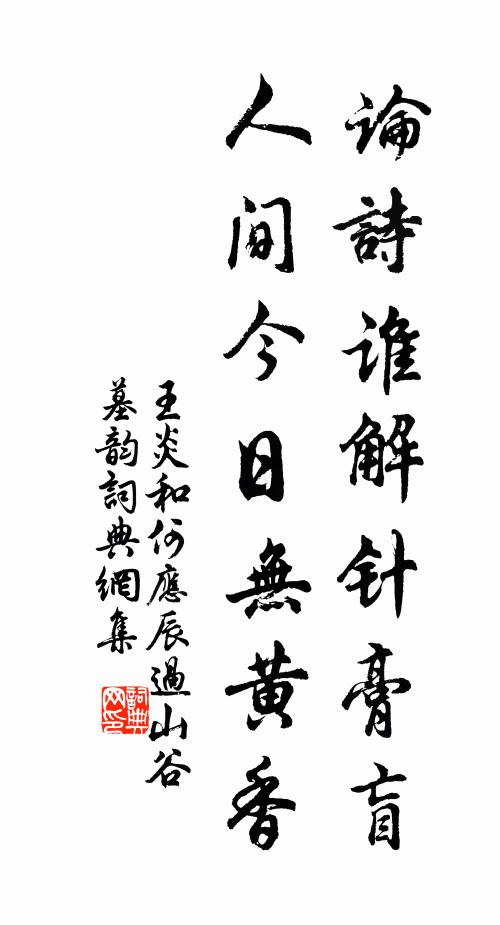 論詩誰解针膏盲
人間今日無黄香
王炎和何應辰過山谷
墓韵詞典網集
詞典
网印